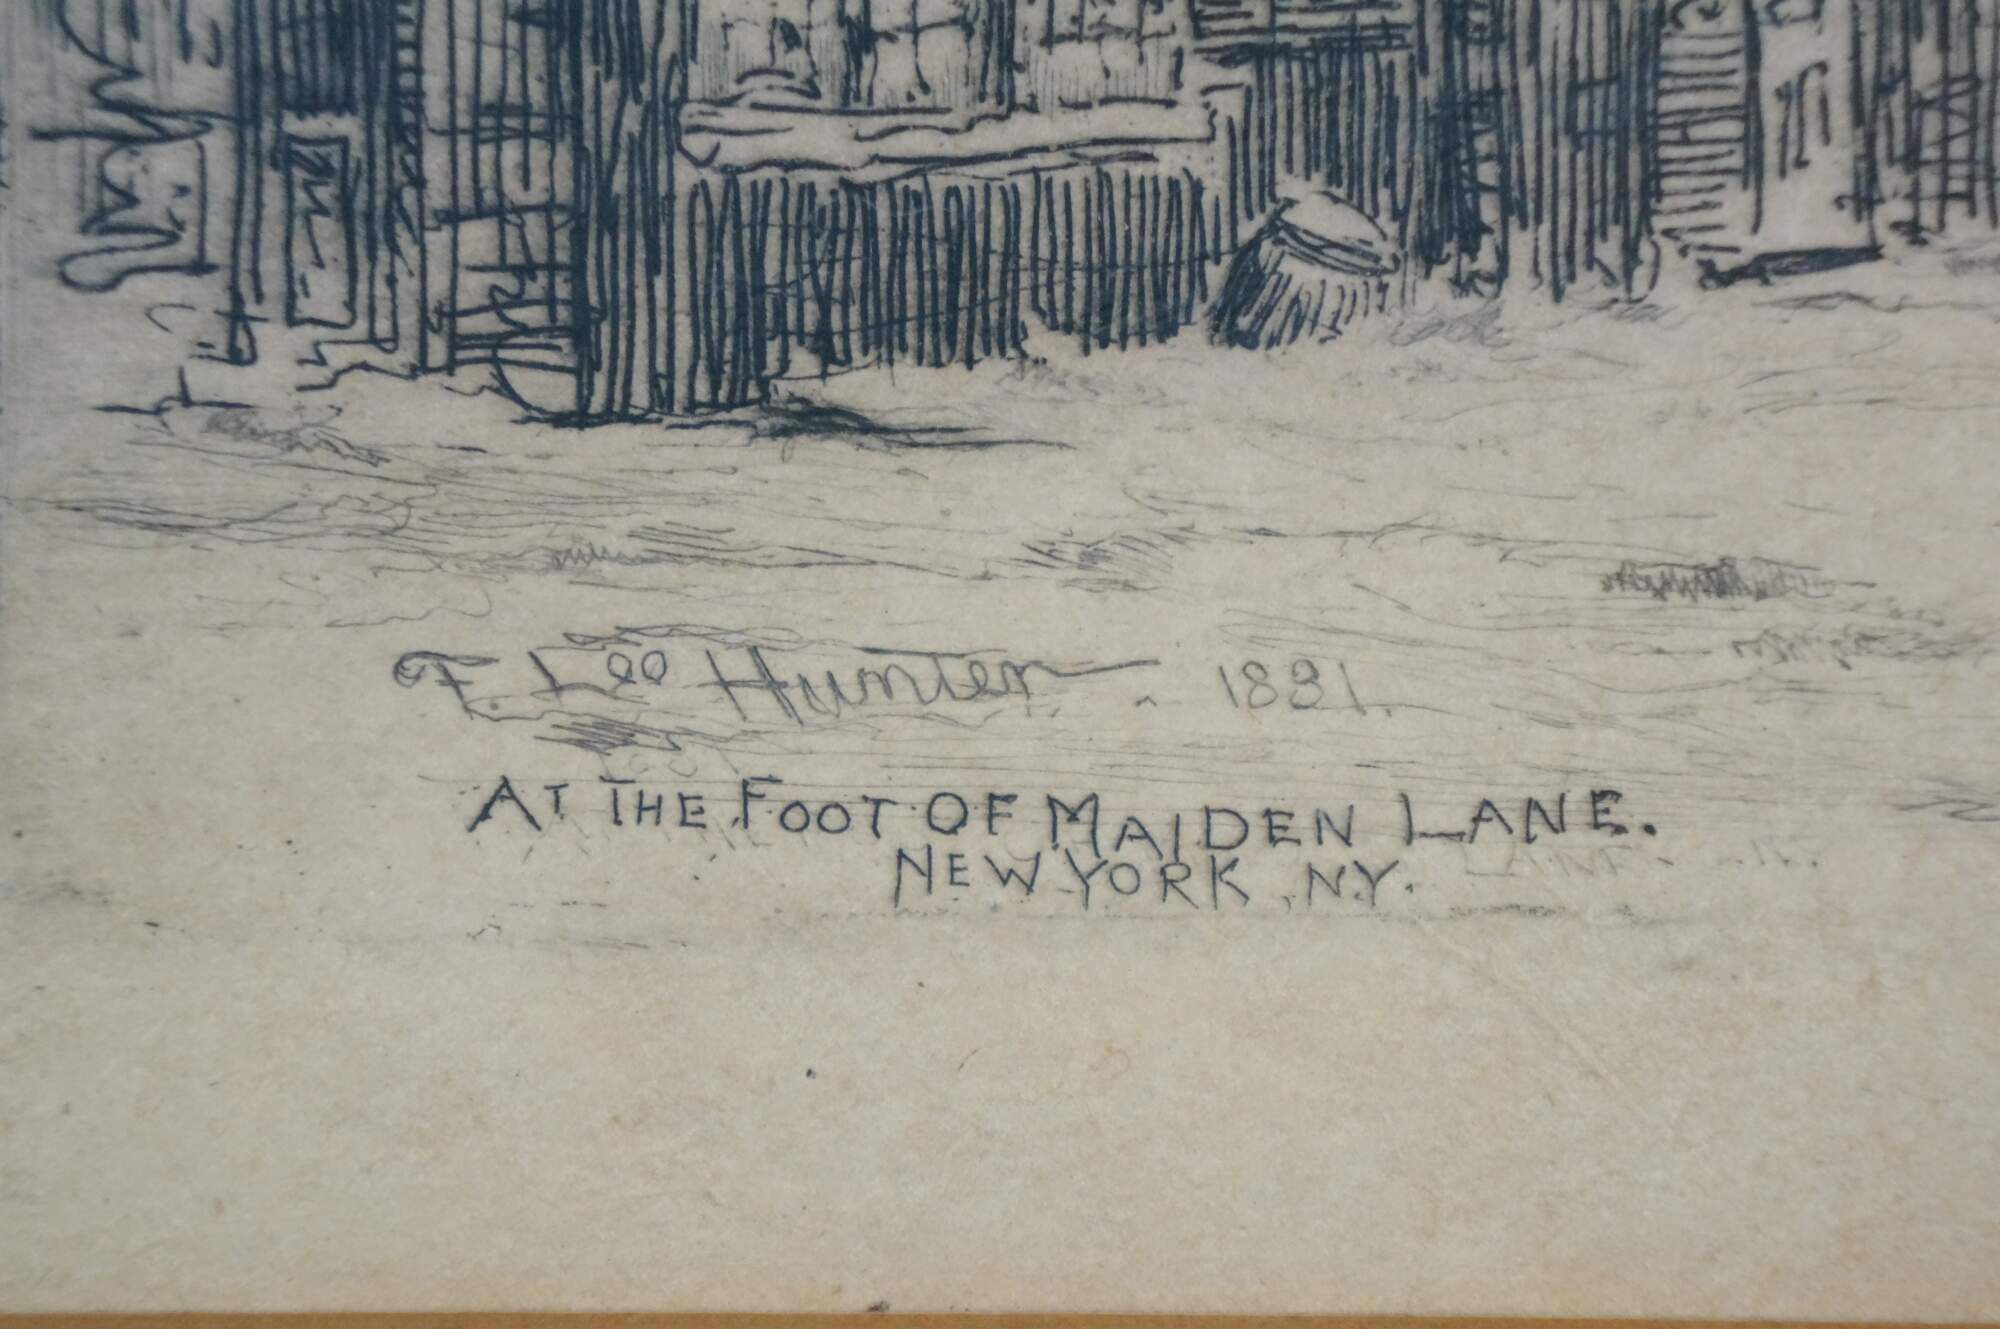 F. Lee Hunter. 1881.
AT THE FOOT OF MAIDEN LANE.
NEW YORK, N.Y.